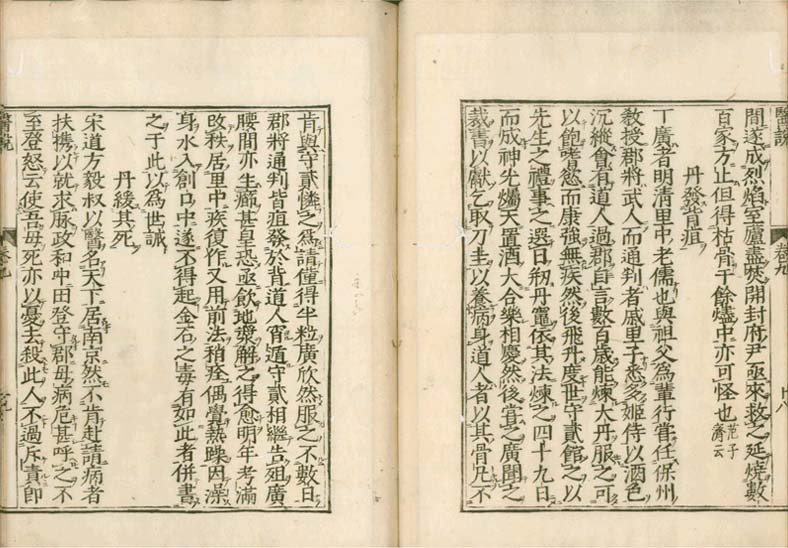 醫説 卷九 十八
間遂成烈焰至廬盡爇開封府尹亟來救之延燒數
百家方止但得枯骨于餘燼中亦可怪也范子濟云
丹發背疽
丁廣者明清里中老儒也與祖父為輩行嘗任保州
教授郡將武人而通判者戚里子悉多姬侍以酒色
沉縱會有道人過郡自言數百歲能煉大丹服之可
以飽嗜慾而康強無疾然後飛丹度世守貳館之以
先生之禮事之選日剏丹竈依其法煉之四十九日
而成神光燭天置酒大合樂相慶然後嘗之廣聞之
裁書以獻乞取刀圭以養病身道人者以其骨凡不
肯與守貳憐之為請僅得半粒廣欣然服之不數日
郡將通判皆疽發於背道人宵遁守貳相繼告殂廣
腰間亦生癤甚皇恐亟飲地漿解之得愈明年考滿
改秩居里中疾復作又用前法稍痊偶覺熱躁因澡
身水入創口中遂不得起金石之毒有如此者併書
之于此以為世誡
丹緩其死
宋道方毅叔以醫名天下居南京然不肯赴請病者
扶攜以就求脉政和中田登守郡母病危甚呼之不
至登怒云使吾母死亦以憂去殺此人不過斥責即
醫説 卷九